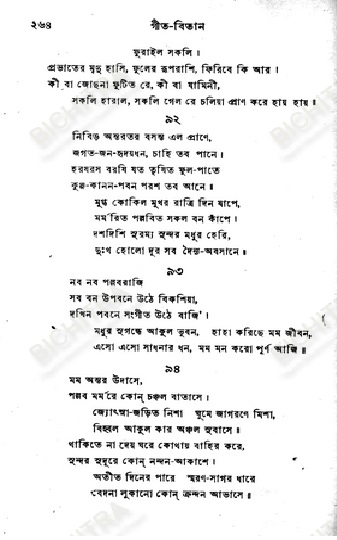 ২৬৪ গীত-বিতান
ফুরাইল সকলি ।
প্রভাতের মৃদু হাসি, ফুলের রূপরাশি, ফিরিবে কি আর ।
কী বা জোছনা ফুটিত রে, কী বা যামিনী,
সকলি হারাল, সকলি গেল রে চলিয়া প্রাণ করে হায় হায় ।
৯২
নিবিড় অন্তরতর বসন্ত এল প্রাণে,
জগত-জন-হৃদয়ধন, চাহি তব পানে ।
হরষরস বরষি যত তৃষিত ফুল-পাতে
কুঞ্জ-কানন-পবন পরশ তব আনে ।
মুগ্ধ কোকিল মুখর রাত্রি দিন যাপে,
মর্মরিত পল্লবিত সকল বন কাঁপে ।
দশদিশি সুরম্য সুন্দর মধুর হেরি,
দুঃখ হোলো দূর সব দৈন্য-অবসানে ।
৯৩
নব নব পল্লবরাজি
সব বন উপবনে উঠে বিকশিয়া,
দখিন পবনে সংগীত উঠে বাজি' ।
মধুর সুগন্ধে আকুল ভুবন, হাহা করিছে মম জীবন,
এসো এসো সাধনার ধন, মম মন করো পূর্ণ আজি ॥
৯৪
মম অন্তর উদাসে,
পল্লব মর্মরে কোন্ চঞ্চল বাতাসে ।
জ্যোৎস্না-জড়িত নিশা ঘুমে জাগরণে মিশা,
বিহ্বল আকুল কার অঞ্চল সুবাসে ।
থাকিতে না দেয় ঘরে কোথায় বাহির করে,
সুন্দর সুদূরে কোন্ নন্দন-আকাশে ।
অতীত দিনের পারে স্মরণ-সাগর ধারে
বেদনা লুকানো কোন্ ক্রন্দন আভাসে ।